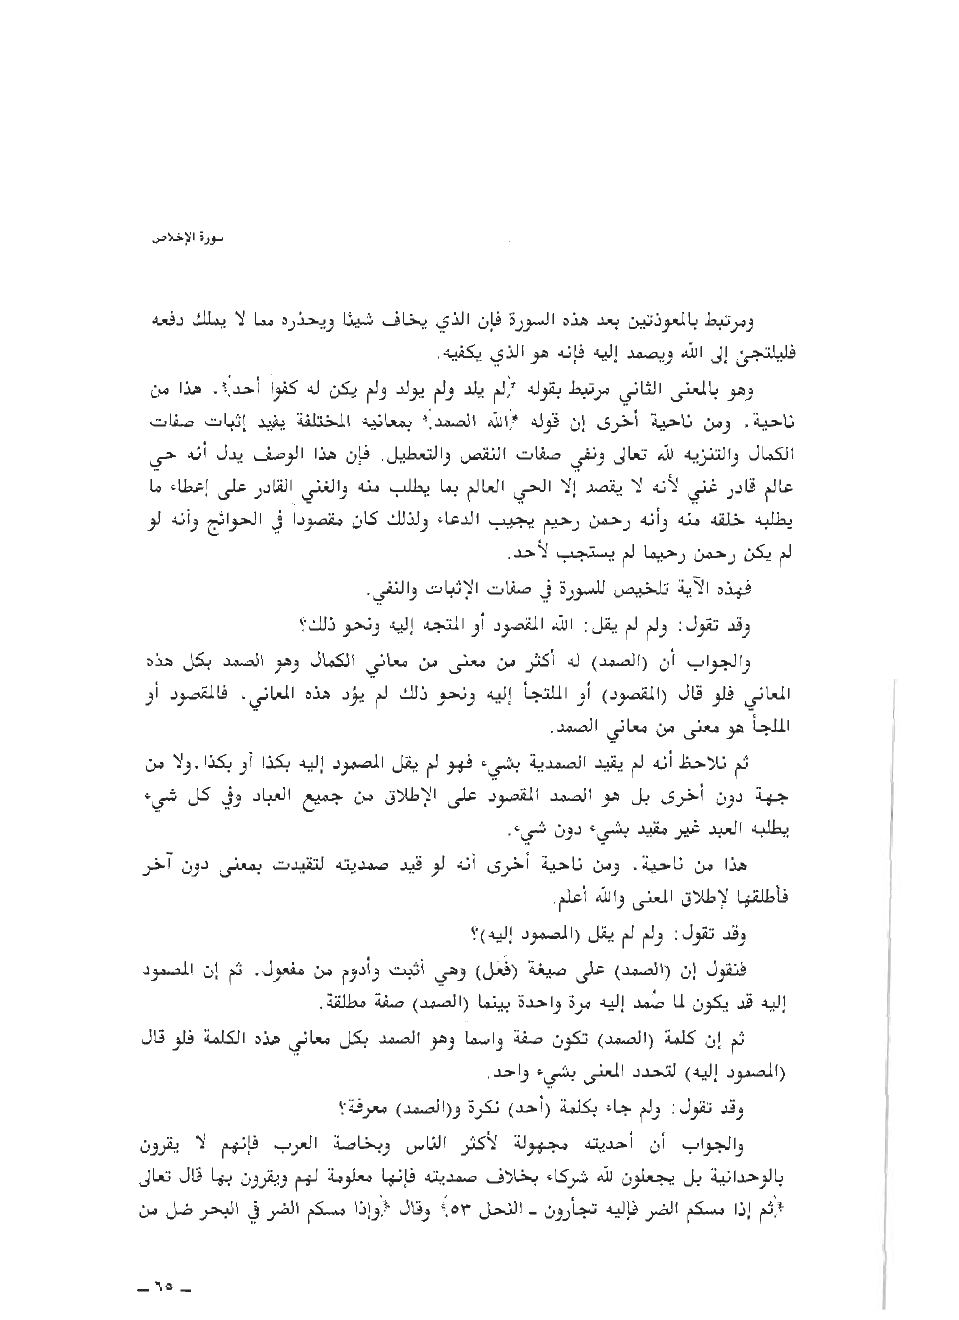 سورة الإخلاص
ومرتبط بالمعوذتين بعد هذه السورة فإن الذي يخاف شيئا ويحذره مما لا يملك دفعه
فليلتجئ إلى الله ويصمد إليه فإنه هو الذي يكفيه.
وهو بالمعنى الثاني مرتبط بقوله ﴿لم يلد ولم يولد ولم يكن له كفواً أحد﴾. هذا من
ناحية. ومن ناحية أخرى إن قوله ﴿الله الصمد﴾ بمعانيه المختلفة يفيد إثبات صفات
الكمال والتنزيه لله تعالى ونفي صفات النقص والتعطيل. فإن هذا الوصف يدل أنه حي
عالم قادر غني لأنه لا يقصد إلا الحي العالم بما يطلب منه والغني القادر على إعطاء ما
يطلبه خلقه منه وأنه رحمن رحيم يجيب الدعاء ولذلك كان مقصوداً في الحوائج وأنه لو
لم يكن رحمن رحيما لم يستجب لأحد.
فهذه الآية تلخيص للسورة في صفات الإثبات والنفي.
وقد تقول: ولم لم يقل: الله المقصود أو المتجه إليه ونحو ذلك؟
والجواب أن (الصمد) له أكثر من معنى من معاني الكمال وهو الصمد بكل هذه
المعاني فلو قال (المقصود) أو الملتجأ إليه ونحو ذلك لم يؤد هذه المعاني. فالمقصود أو
الملجأ هو معنى من معاني الصمد.
ثم نلاحظ أنه لم يقيد الصمدية بشيء فهو لم يقل المصمود إليه بكذا أو بكذا.ولا من
جهة دون أخرى بل هو الصمد المقصود على الإطلاق من جميع العباد وفي كل شيء
يطلبه العبد غير مقيد بشيء دون شيء.
هذا من ناحية. ومن ناحية أخرى أنه لو قيد صمديته لتقيدت بمعنى دون آخر
فأطلقها لإطلاق المعنى والله أعلم.
وقد تقول: ولم لم يقل (المصمود إليه)؟
فنقول إن (الصمد) على صيغة (فَعَل) وهي أثبت وأدوم من مفعول. ثم إن المصمود
إليه قد يكون لما صُمد إليه مرة واحدة بينما (الصمد) صفة مطلقة.
ثم إن كلمة (الصمد) تكون صفة واسما وهو الصمد بكل معاني هذه الكلمة فلو قال
(المصمود إليه) لتحدد المعنى بشيء واحد.
وقد تقول: ولم جاء بكلمة (أحد) نكرة و(الصمد) معرفة؟
والجواب أن أحديته مجهولة لأكثر الناس وبخاصة العرب فإنهم لا يقرون
بالوحدانية بل يجعلون لله شركاء بخلاف صمديته فإنها معلومة لهم ويقرون بها قال تعالى
﴿ثم إذا مسكم الضر فإليه تجأرون ـ النحل ٥٣﴾ وقال ﴿وإذا مسكم الضر في البحر ضل من
ـ ٦٥ ـ